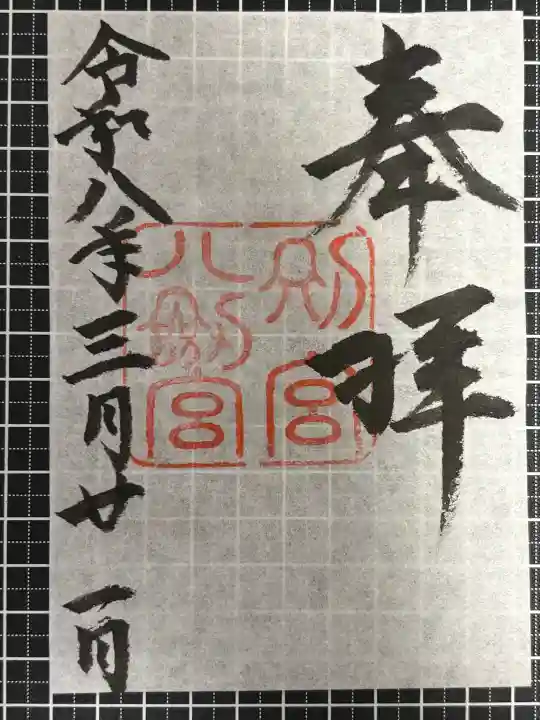 奉拝
別宮
八剣宮
令和八年三月廿一日